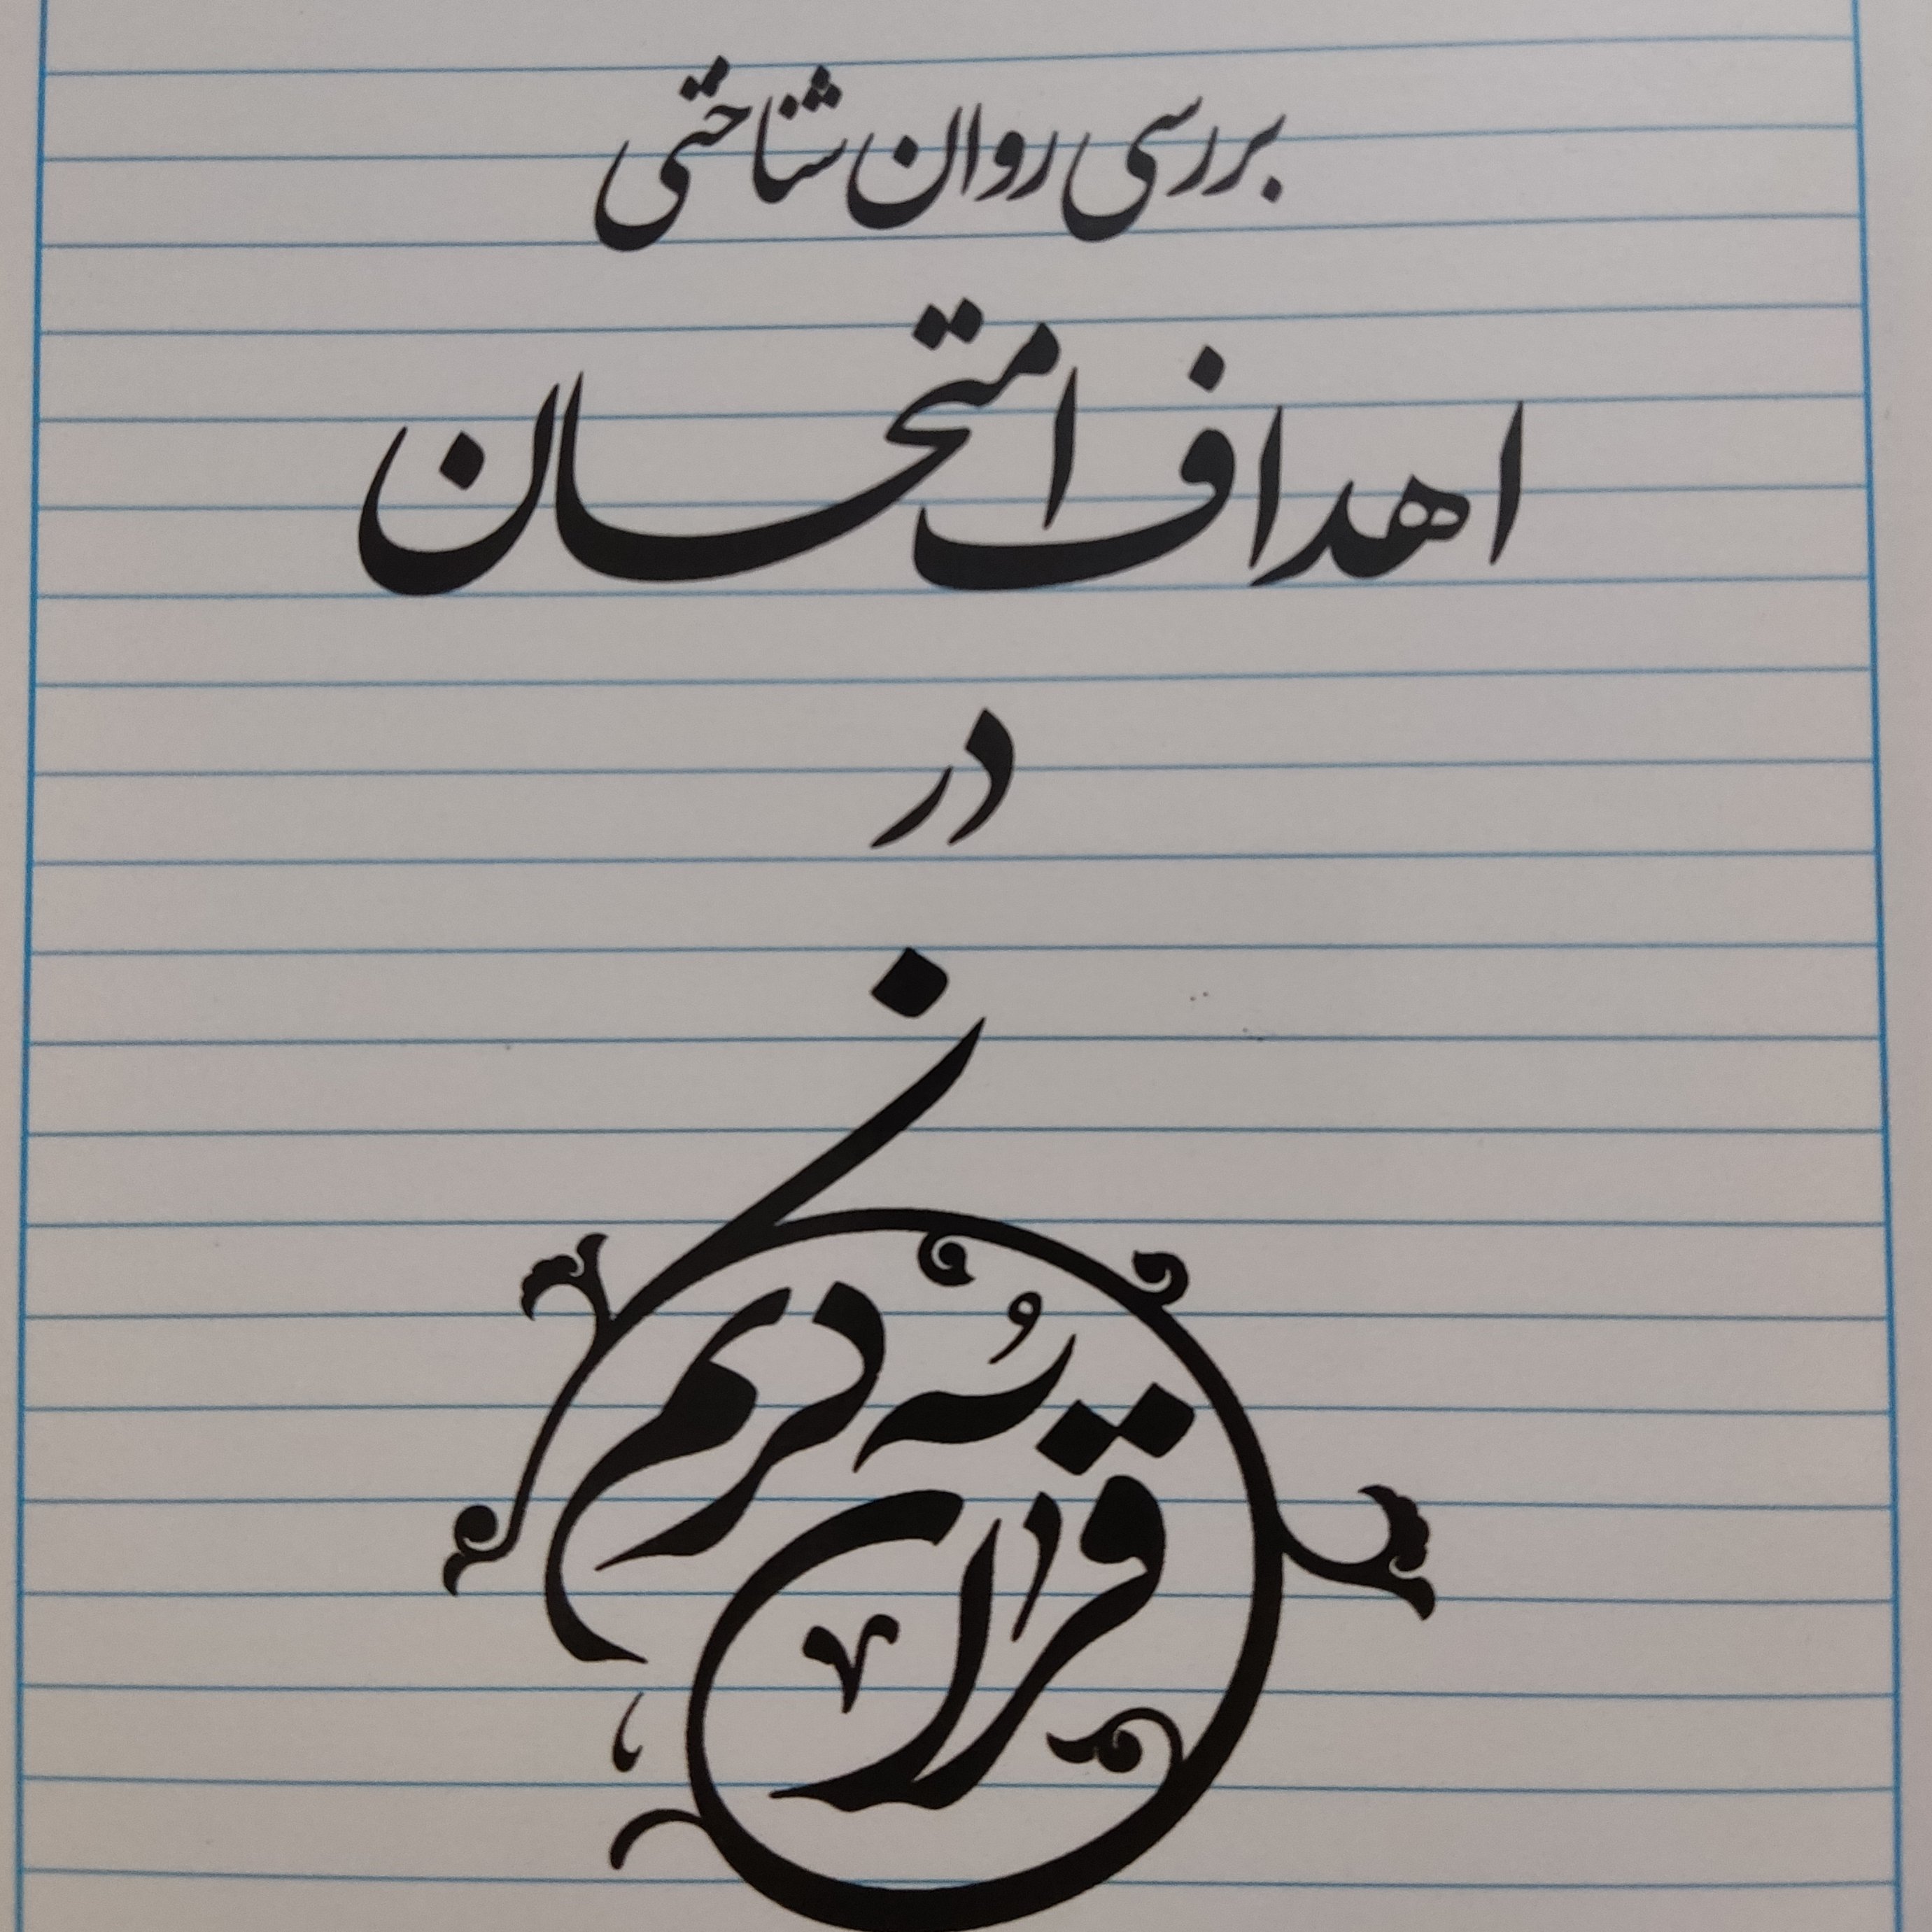 بررسی روان شناختی
اهداف امتحان
در
قرآن کریم